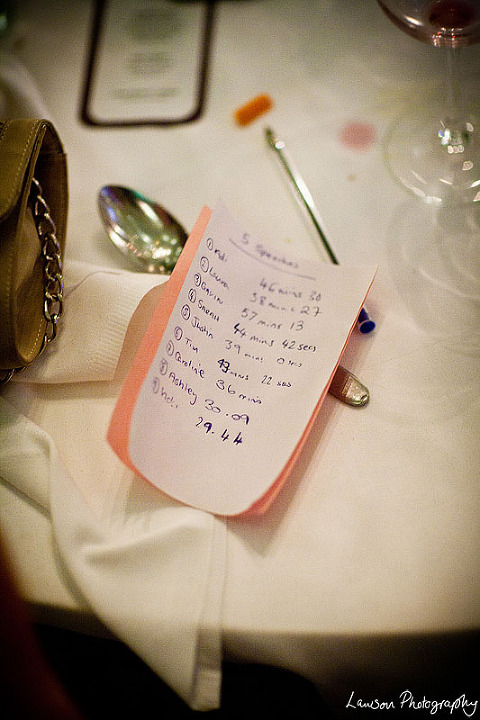 5 Speeches
① 46 mins 30
② Laura 38 mins 27
③ Gavin 57 mins 13
④ 44 mins 42 secs
⑤ Justin 39 mins 0 secs
⑥ Tim 43 mins 22 secs
⑦ Caroline 36 mins
⑧ Ashley 30.09
⑨ 29.44
Lawson Photography